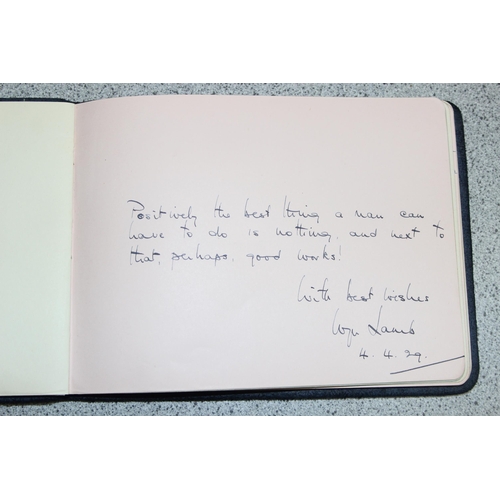 Positively the best thing a man can
have to do is nothing, and next to
that, perhaps, good works!
With best wishes
Wyn Lamb
4.4.29.